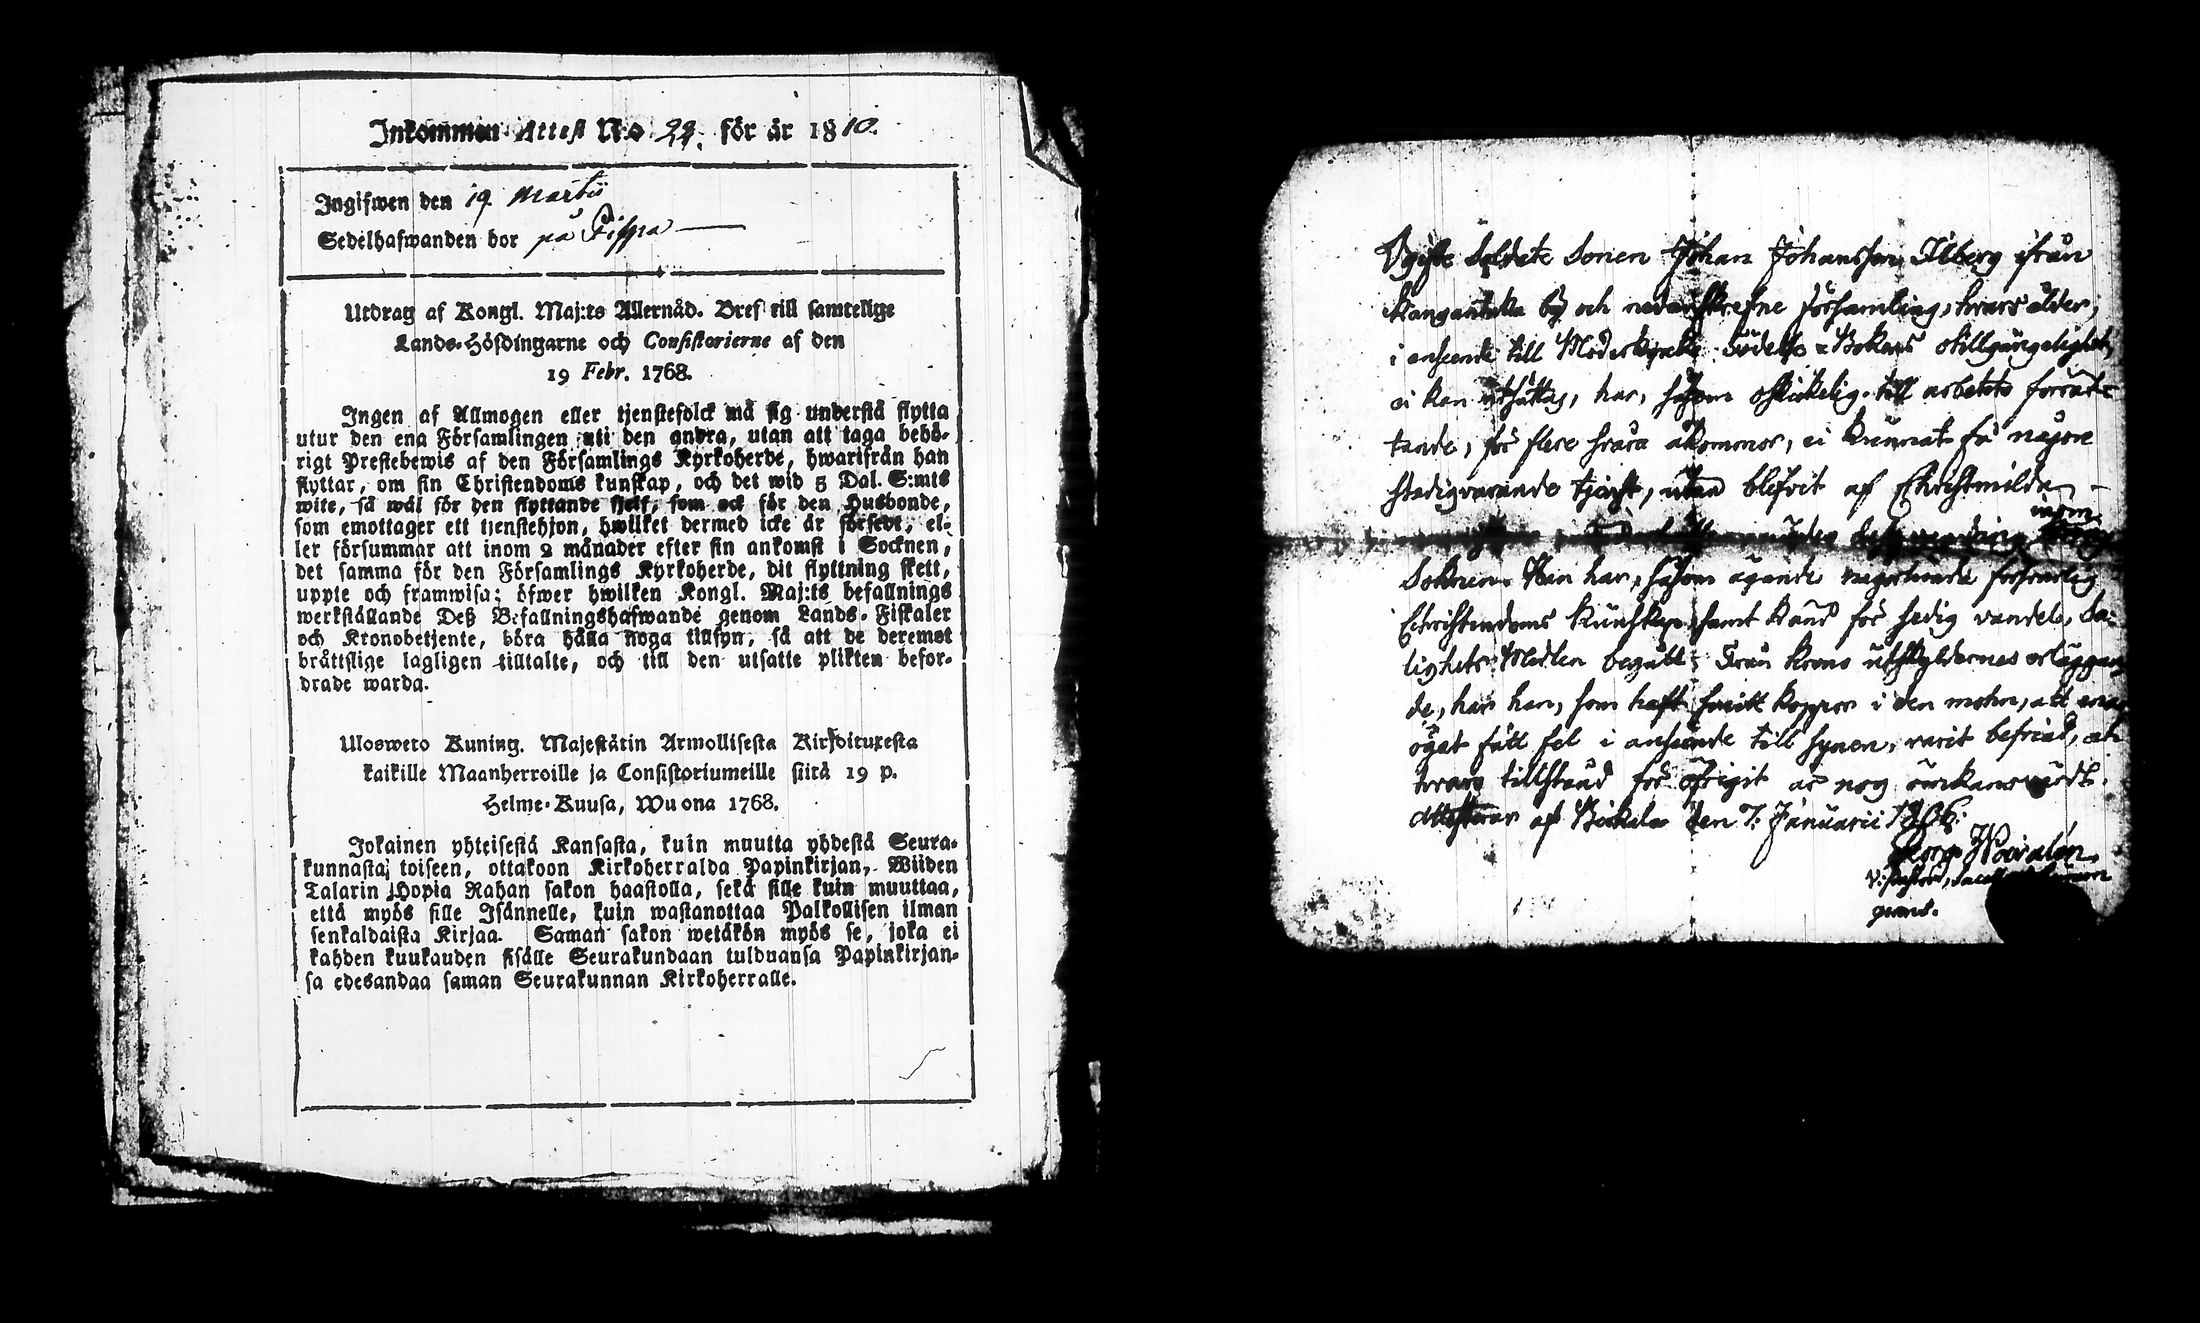 Inkommen Attest N:o 29. för år 1810.
Ingifwen den 19 Martii
Sedelhafwanden bor på
Utdrag af Kongl. Maj:ts Allernåd. Bref till samtelige
Lands-Höfdingarne och Consistorierne af den
19 Febr. 1768.
Ingen af Allmogen eller tjenstefolck må sig understå flytta
utur den ena Församlingen uti den andra, utan att taga behö-
rigt Prestebewis af den Församlings Kyrkoherde, hwarifrån han
flyttar, om sin Christendoms kunskap, och det wid 5 Dal. S:mts
wite, så wäl för den flyttande sjelf, som ock för den Husbonde,
som emottager ett tjenstehjon, hwilket dermed icke är försedt, el-
ler försummar att inom 2 månader efter sin ankomst i Socknen,
det samma för den Församlings Kyrkoherde, dit flyttning skett,
uppte och framwisa; öfwer hwilken Kongl. Maj:ts befallnings
werkställande Deß Befallningshafwande genom Lands-Fiskaler
och Kronobetjente, böra hålla noga tillsyn, så att de deremot
bråttslige lagligen tilltalte, och till den utsatte plikten befor-
drade warda.
Ulosweto Kuning. Majestätin Armollisesta Kirjoituxesta
kaikille Maanherroille ja Consistoriumeille siitä 19 p.
Helme-Kuusa, Wuona 1768.
Jokainen yhteisestä Kansasta, kuin muutta yhdestä Seura-
kunnasta toiseen, ottakoon Kirkoherralda Papinkirjan, Wiiden
Talarin Hopia Rahan sakon haastolla, sekä sille kuin muuttaa,
että myös sille Isännelle, kuin wastanottaa Palkollisen ilman
senkaldaista Kirjaa. Saman sakon wetäkön myös se, joka ei
kahden kuukauden sisälle Seurakundaan tulduansa Papinkirjan-
sa edesandaa saman Seurakunnan Kirkoherralle.
Ogifte Soldate Sonen Johan Johansson Åberg ifrån
Kangantaka by och nedanskrefne församling, hvars ålder,
i anseende till Moderkyrko Bokens otillgängelighet,
ei kan utsättas, har, såsom oskickelig till arbetets förrät-
tande, för flere svåra åkommor, ei kunnat få någon
stadigvarande tjenst, utan blifvit af Christmilda
inom
Soknen. Han har, såsom ägande försvarlig
Christendoms kunskap, samt känd för sedig vandel, Sa-
lighets Medlen begått. Från krono utskyldernes erläggan-
de, har han, som haft svåra koppor i den mohn, att ena
ögat fått fel i anseende till synen, varit befriad,
hvars tillstånd för öfrigit är nog ömkansvärdt.
Attesterar af Birkala den 7. Januarii 1806.